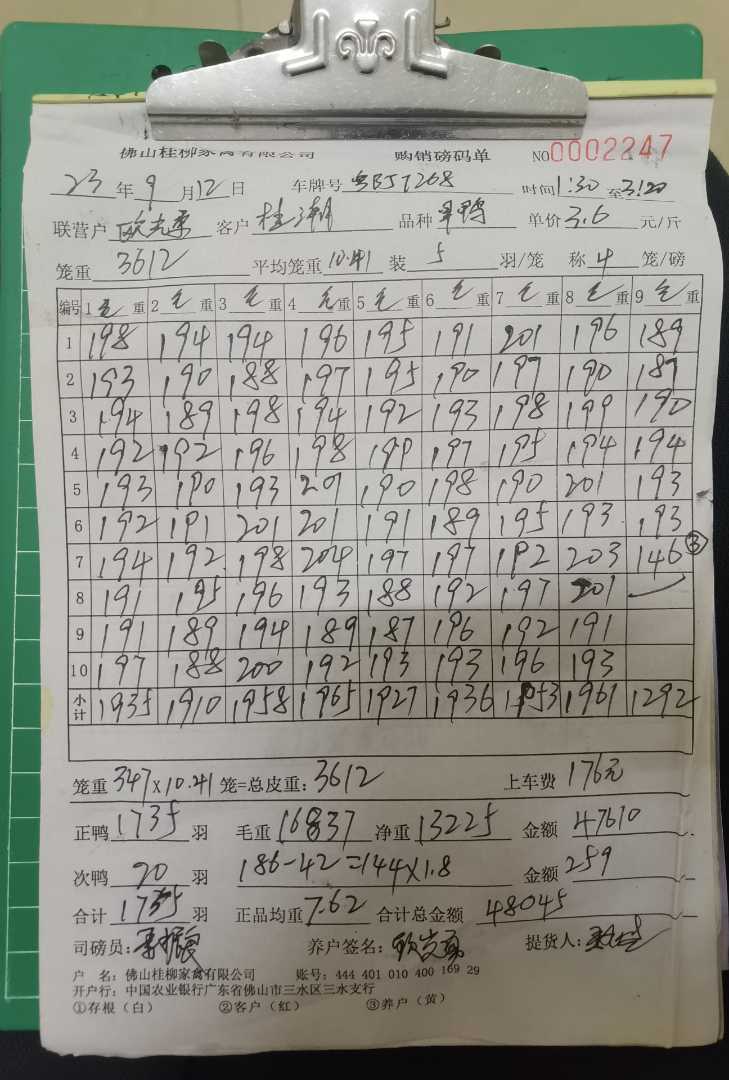 佛山桂柳家禽有限公司 购销磅码单 NO0002247
23年9月12日 车牌号 粤BJ7268 时间1:30至3:20
联营户 客户 桂湘 品种 单价3.6元/斤
笼重 3612 平均笼重10.41装5羽/笼 称4笼/磅
编号 1毛重 2毛重 3毛重 4毛重 5毛重 6毛重 7毛重 8毛重 9毛重
1 198 194 194 196 195 191 201 196 189
2 193 190 188 197 195 190 197 190 187
3 194 189 198 194 192 193 198 199 190
4 192 192 196 198 199 197 195 194 194
5 193 190 193 201 190 198 190 201 193
6 192 191 201 201 191 189 195 193 193
7 194 192 198 204 197 197 192 203 146③
8 191 195 196 193 188 192 197 201
9 191 189 194 189 187 196 192 191
10 197 188 200 192 193 193 196 193
小计 1935 1910 1958 1965 1927 1936 1953 1961 1292
笼重347×10.41笼=总皮重:3612 上车费176元
正鸭1735羽 毛重16837净重13225 金额47610
次鸭20羽 186-42=144×1.8 金额259
合计1735羽 正品均重7.62 合计总金额48045
司磅员: 养户签名: 提货人:
户 名:佛山桂柳家禽有限公司 账号:444 401 010 400 169 29
开户行:中国农业银行广东省佛山市三水区三水支行
①存根(白) ②客户(红) ③养户(黄)